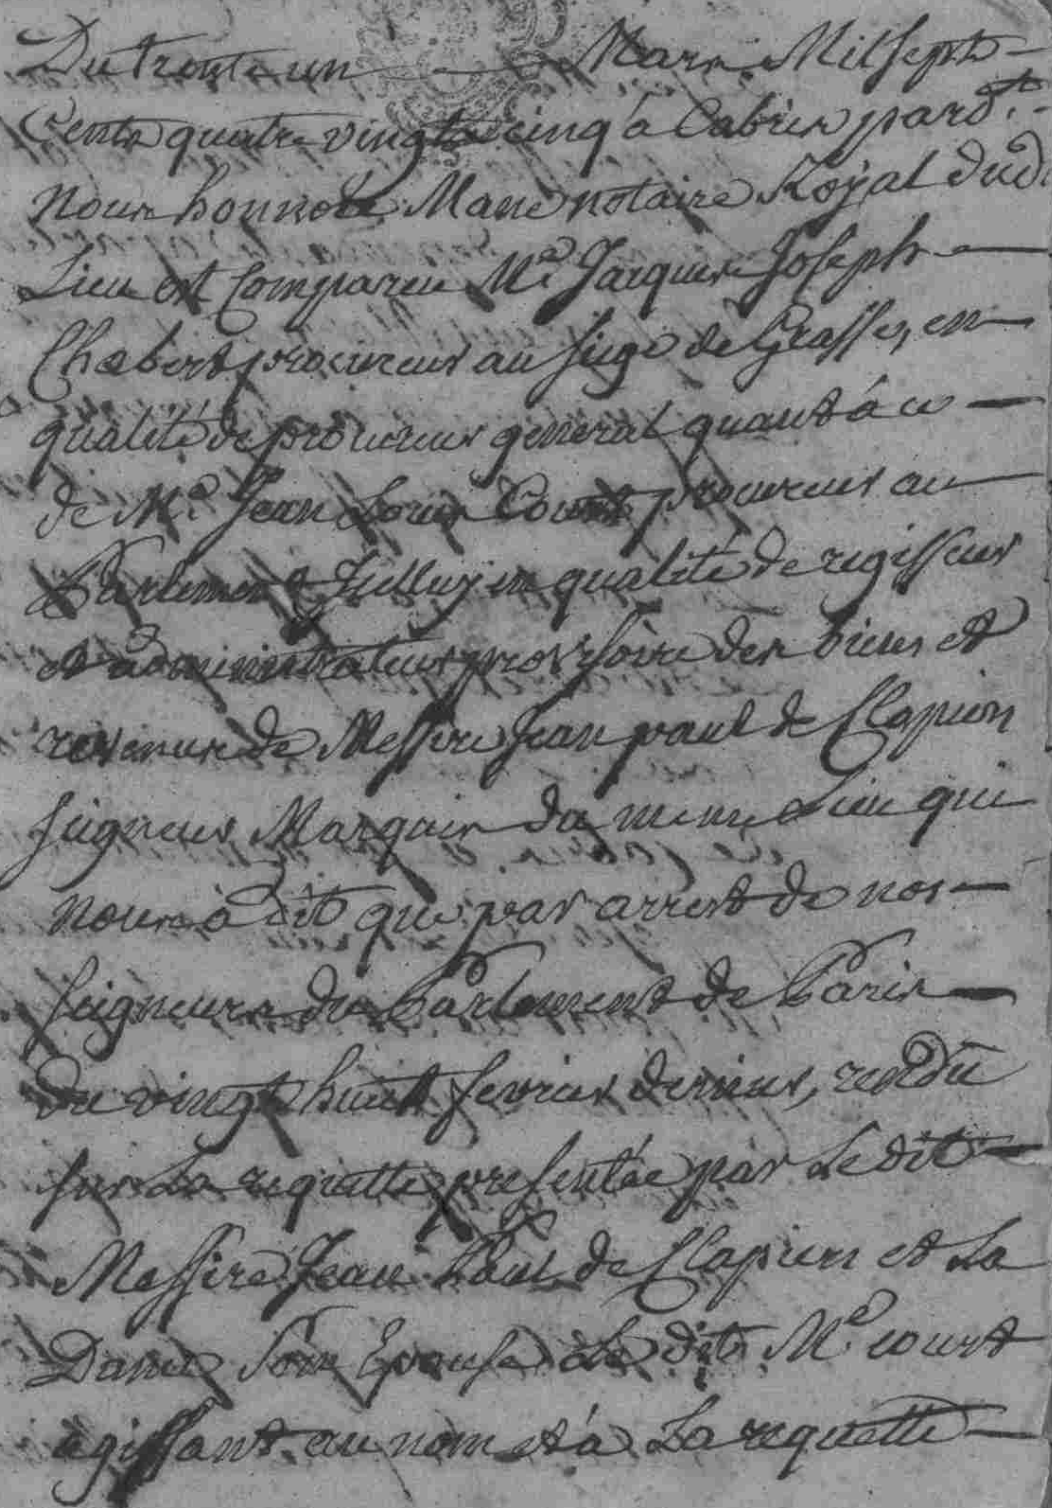 Du trente un Mars Mil sept
Cents quatre vingts cinq à Cabris par d.t
Nous honnoré Mane notaire Royal dud.
Lieu est Comparu M.e Jacques Joseph
Chabert procureur au siege de Grasse, en
qualité de procureur general quant à ce
de M.e Jean Louis Court procureur au
Parlement en qualité de regisseur
et administrateur provisoire des biens et
revenus de Messire Jean paul de Clapiers
seigneur Marquis du meme Lieu qui
nous à dit que par arrest de nos
seigneurs du Parlement de Paris
du vingt huit fevrier dernier, rendu
sur La requette presentée par Le dit
Messire Jean Paul de Clapiers et La
Dame son Epouse Le dit M.e Court
agissant au nom et à La requette